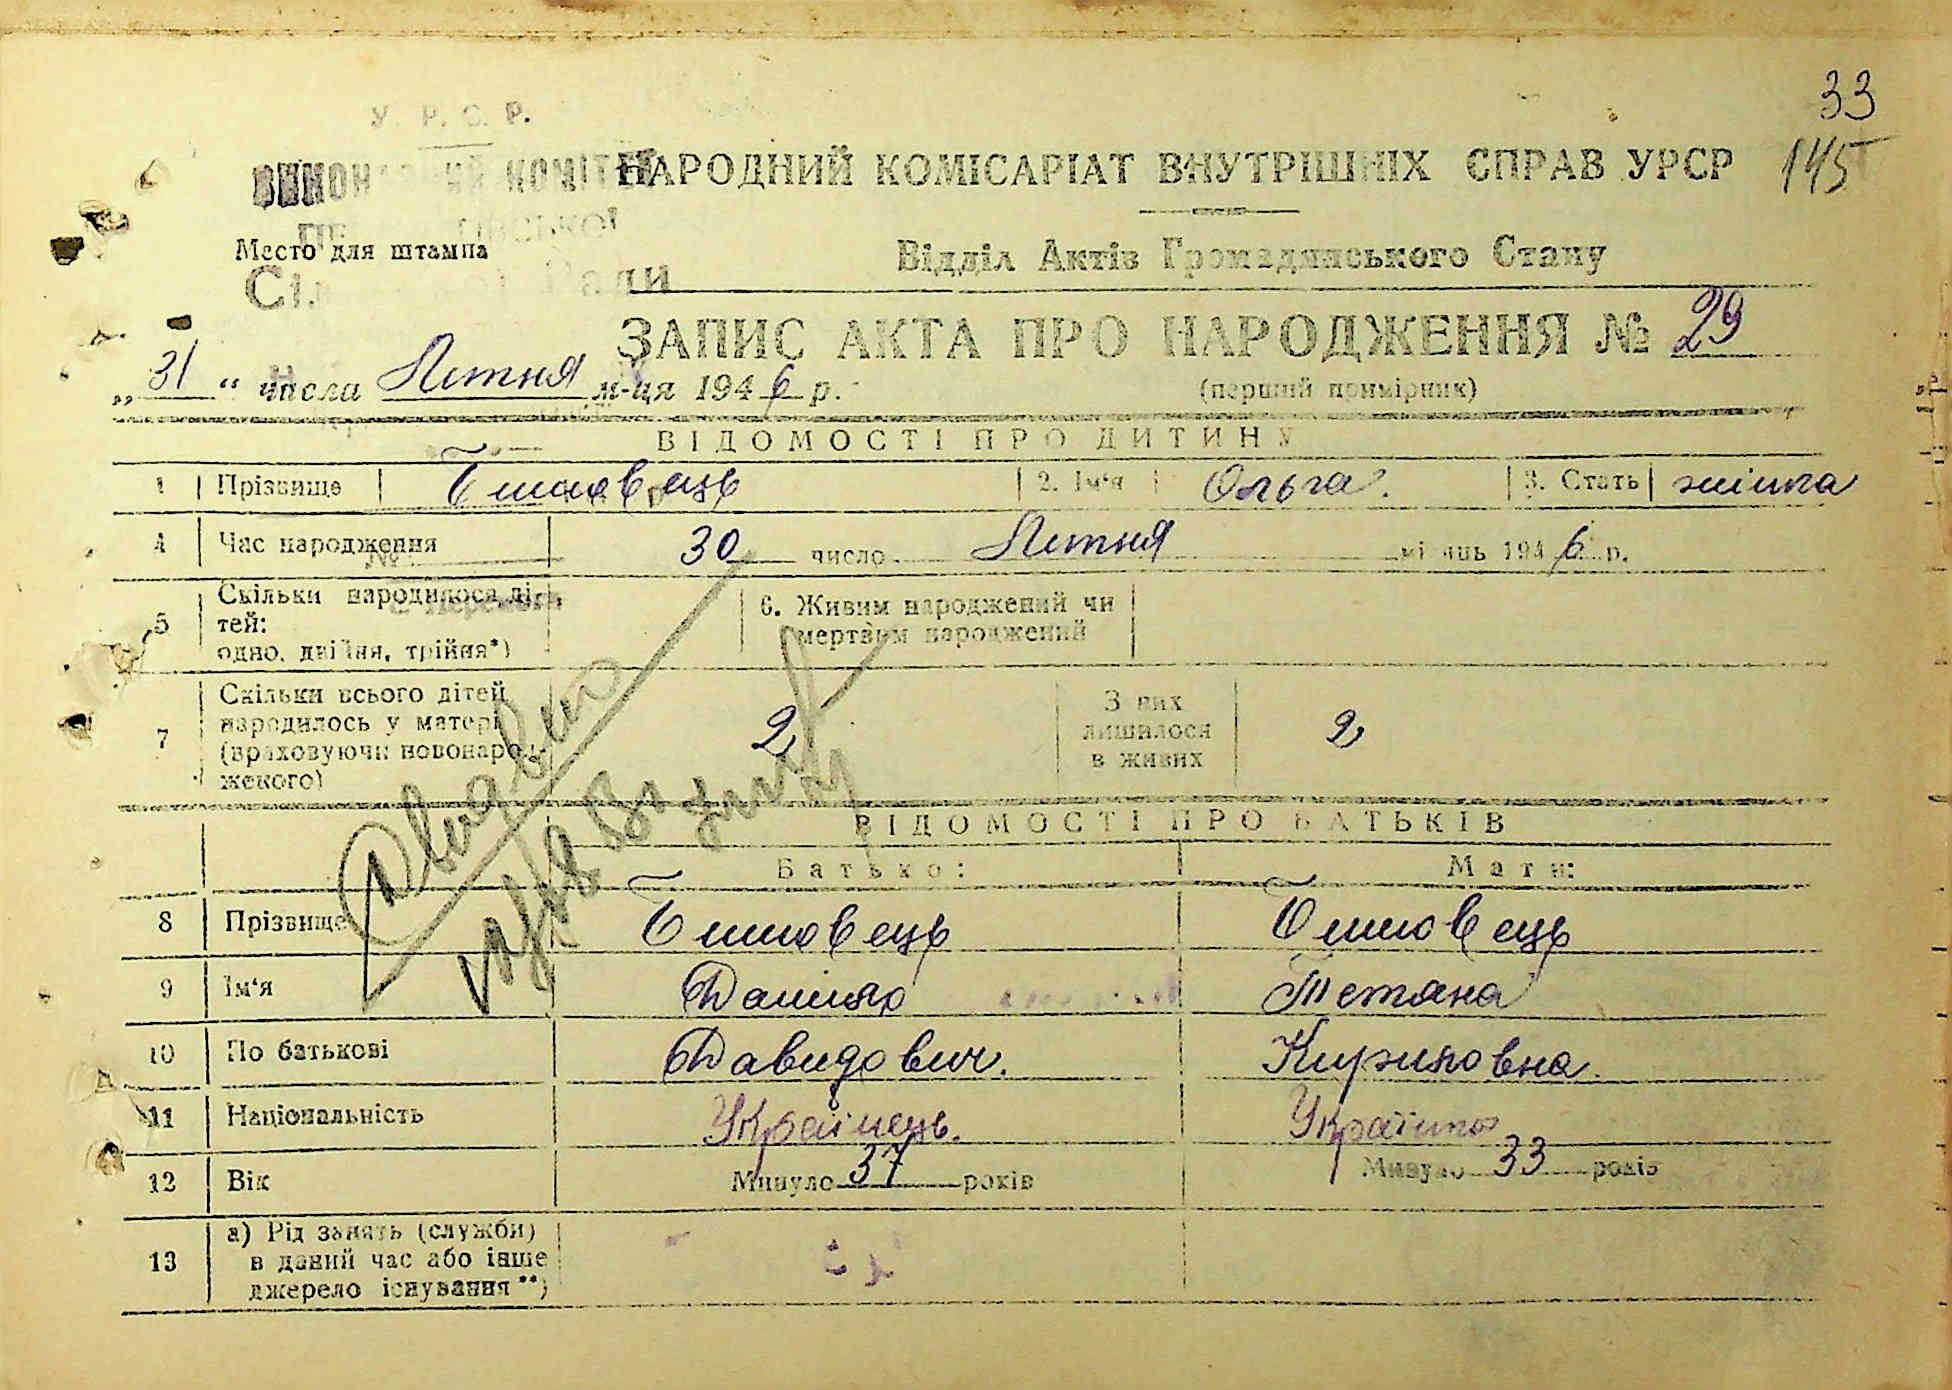 33
145
У. Р. С. Р.
НАРОДНИЙ КОМІСАРІАТ ВНУТРІШНІХ СПРАВ УРСР
Место для штампа
Відділ Актів Громадянського Стану
ЗАПИС АКТА ПРО НАРОДЖЕННЯ № 29
„31“ числа Літня м-ця 1946 р.
(перший примірник)
ВІДОМОСТІ ПРО ДИТИНУ
1 Прізвище 2. Ім'я Ольга. 3. Стать жінка
4 Час народження 30 число Літня місяць 1946 р.
5 Скільки народилося ді-
тей:
одно, двійня, трійня*)
6. Живим народжений чи
мертвим народжений
7 Скільки всього дітей
народилось у матері
(враховуючи новонарод-
женого)
2
З них
лишилося
в живих
2
ВІДОМОСТІ ПРО БАТЬКІВ
Батько: Мати:
8 Прізвище
9 Ім'я Данило Тетяна
10 По батькові Давидович. Кириловна.
11 Національність Українець. Українка
12 Вік Минуло 37 років Минуло 33 років
13 а) Рід занять (служби)
в даний час або інше
джерело існування**)